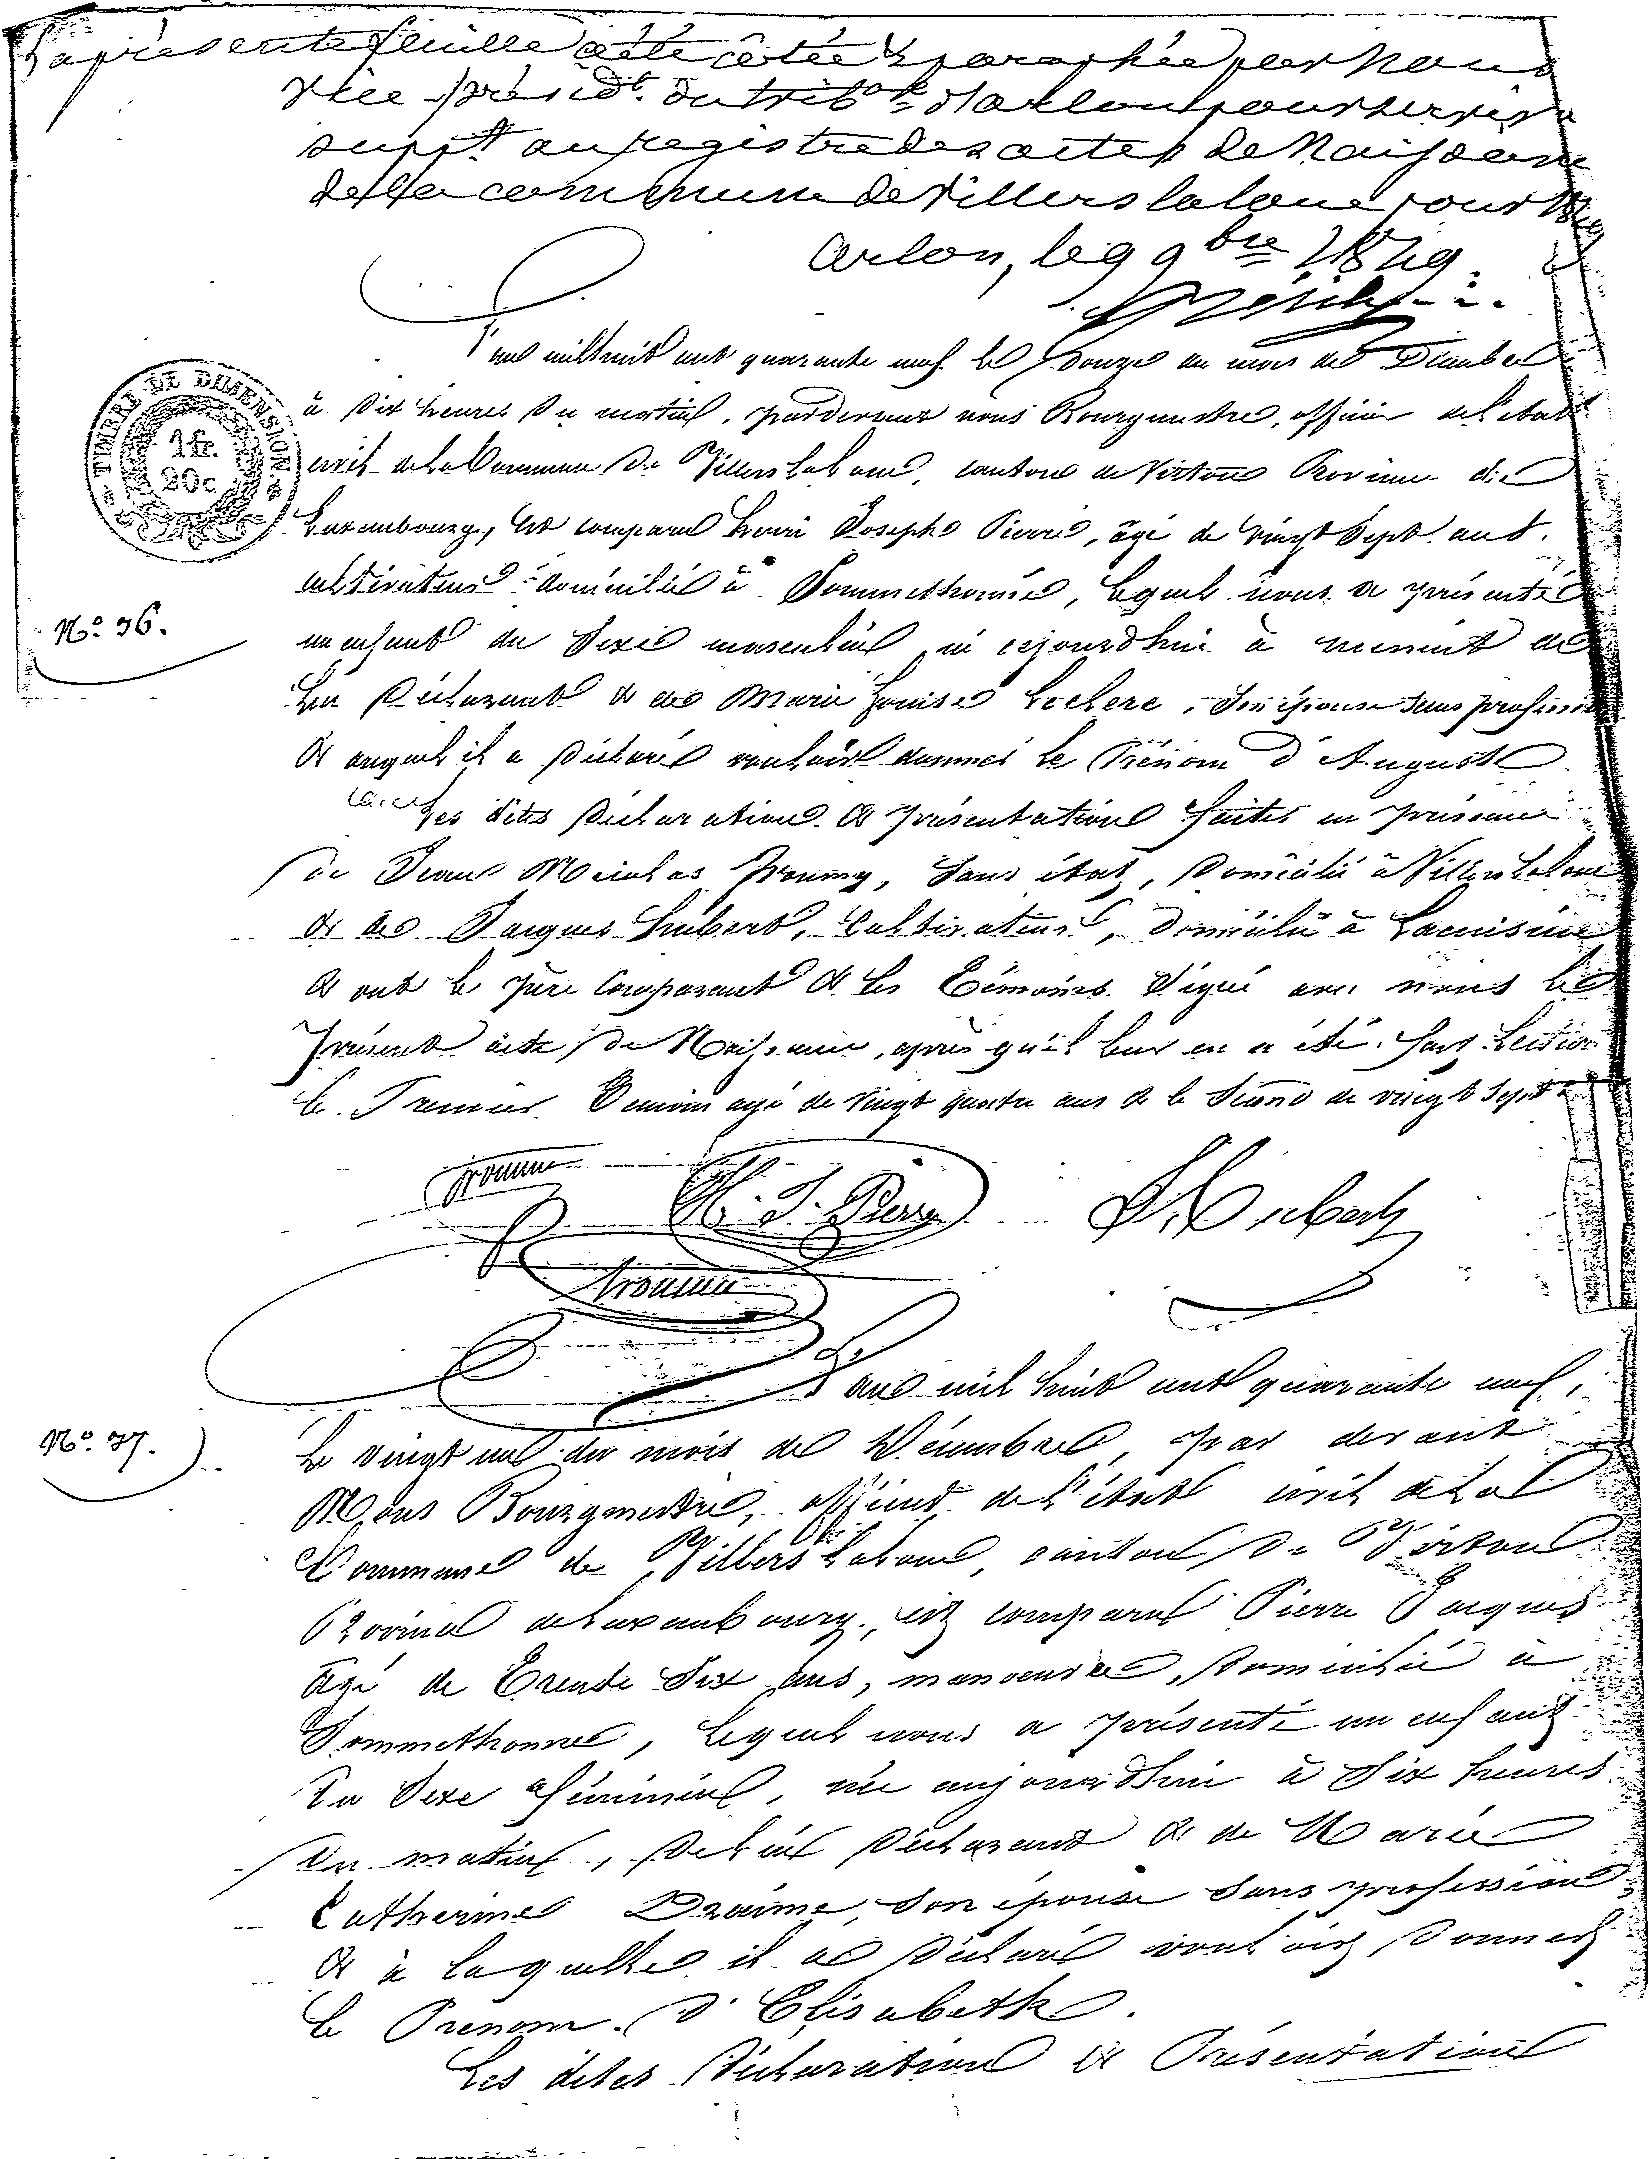 La présente feuille a été côtée & paraphée par Nous
vice présidt. du tribal d'arlon pour servir de
supplt au registre des actes de Naissance
de la commune de Villers la loue pour 1849
Arlon, le 9 9bre 1849.
TIMBRE DE DIMENSION
1 fr.
20 c
L'an mil huit cent quarante neuf le douze du mois de Décembre
à dix heures du matin, pardevant nous Bourgmestre, officier de l'état
civil de la Commune de Villers la loue, canton de Virton Province de
Luxembourg, est comparu Henri Joseph Pierre, âgé de vingt sept ans,
cultivateur domicilié à Sommethonne, lequel nous a présenté
N° 36.
un enfant du sexe masculin né cejourd'hui à minuit de
lui déclarant & de Marie Louise Leclerc, son épouse sans profession
& auquel il a déclaré vouloir donner le Prénom d'Auguste
Les dites déclaration & présentation faites en présence
de Jean Nicolas, sans état, domicilié à Villers la loue
& de Jacques Hubert, Cultivateur, domicilié à Lacuisine
& ont le père Comparant & les Témoins signé avec nous le
présent acte de Naissance, après qu'il leur en a été fait Lecture
le Premier Témoin agé de vingt quatre ans & le second de vingt sept
H. J. Pierre
J. Hubert
L'an mil huit cent quarante neuf,
N° 37.
le vingt un du mois de Décembre, par devant
Nous Bourgmestre, officier de l'état civil de la
Commune de Villers la loue, canton de Virton
Province de Luxembourg, est comparu Pierre Jacques
agé de Trente six ans, manoeuvre, domicilié à
Sommethonne, lequel nous a présenté un enfant
du sexe féminin, née aujourd'hui à six heures
du matin, de lui déclarant & de Marie
Catherine Draime, son épouse sans profession
& à laquelle il a déclaré vouloir donner
le Prénom d'Elisabeth.
Les dites déclaration & Présentation